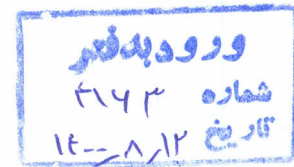 ورود به دفتر
شماره ۳۱۶۳
تاریخ ۱۴۰۰/۸/۱۲